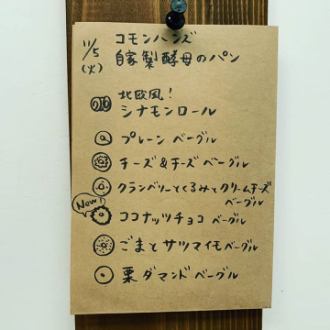 11/5
(火)
コモンハンズ
自家製酵母のパン
北欧風!
シナモンロール
プレーン ベーグル
チーズ&チーズ ベーグル
クランベリーとくるみとクリームチーズ
ベーグル
New!
ココナッツチョコ ベーグル
ごまとサツマイモベーグル
栗ダマンドベーグル